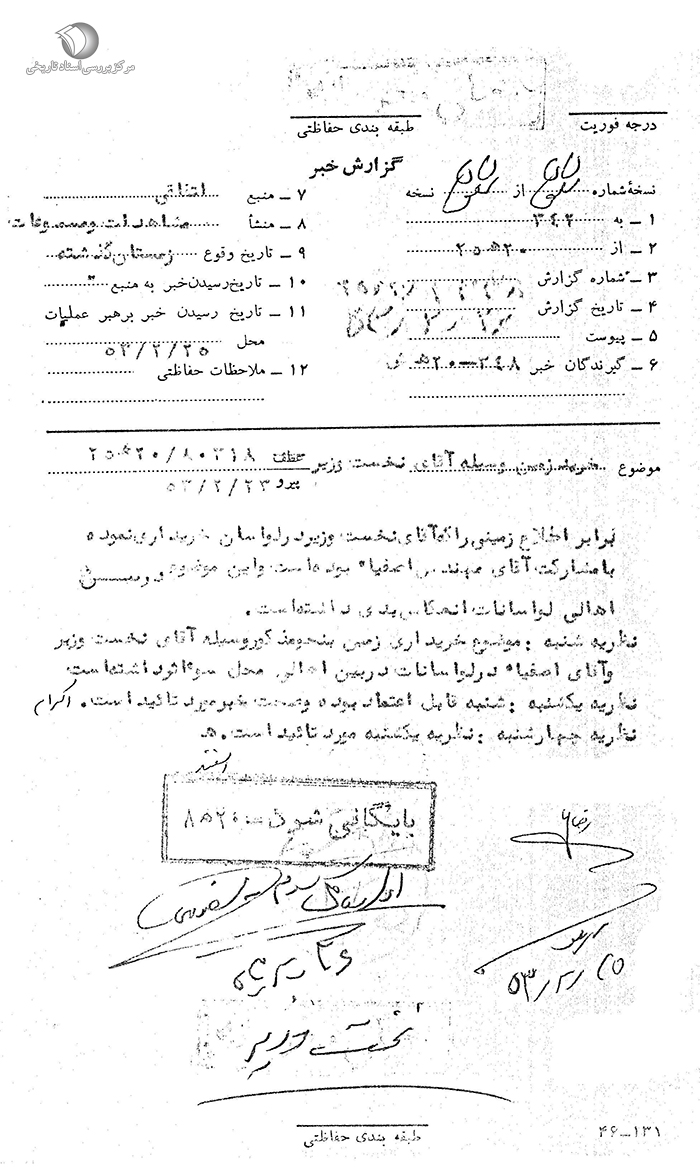 مرکز بررسی اسناد تاریخی
طبقه بندی حفاظتی
درجه فوریت
گزارش خبر
نسخهٔ شماره از نسخه
۱ ـ به ۳۴۲
۲ ـ از ۲۰ﻫ۲۵
۳ ـ شماره گزارش
۴ ـ تاریخ گزارش
۵ ـ پیوست
۶ ـ گیرندگان خبر ۳۴۸ـ۲۰ﻫ
۷ ـ منبع اتفاقی
۸ ـ منشأ مشاهدات و مسموعات
۹ ـ تاریخ وقوع زمستان گذشته
۱۰ ـ تاریخ رسیدن خبر به منبع "
۱۱ ـ تاریخ رسیدن خبر برهبر عملیات
محل ۵۳/۲/۲۵
۱۲ ـ ملاحظات حفاظتی
موضوع خرید زمین وسیله آقای نخست وزیر عطف ۸۰۳۱۸/۲۰ﻫ۲۵
پیرو ۵۳/۲/۲۳
برابر اطلاع زمینی راکه آقای نخست وزیر در لواسان خریداری نموده
با مشارکت آقای مهندس اصفیاء بوده است و این موضوع در بین
اهالی لواسانات انعکاس بدی داشته است.
نظریه شنبه : موضوع خریداری زمین بنحو مذکور وسیله آقای نخست وزیر
و آقای اصفیاء در لواسانات در بین اهالی محل سوء اثر داشته است
نظریه یکشنبه : شنبه قابل اعتماد بوده وصحت خبر مورد تائید است. اکرام
نظریه چهارشنبه : نظریه یکشنبه مورد تائید است. ﻫ
اسفند
بایگانی شود ـ ۲۰ﻫ۸
نخست وزیر
طبقه بندی حفاظتی
۱۳۱ـ۴۶